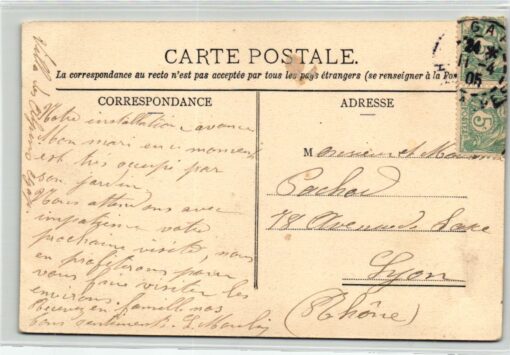 CARTE POSTALE.
La correspondance au recto n'est pas acceptée par tous les pays étrangers (se renseigner à la
CORRESPONDANCE
ADRESSE
Notre installation avance
Mon mari en ce moment
est très occupé par
son jardin.
Nous attendons avec
impatience votre
prochaine visite, nous
en profiterons pour
vous faire visiter les
environs.
Recevez en famille nos
bons sentiments.
Monsieur et
Pachod
78 Avenue de Saxe
Lyon
(Rhône)
GA
24
11 -4
05
5
Villa les